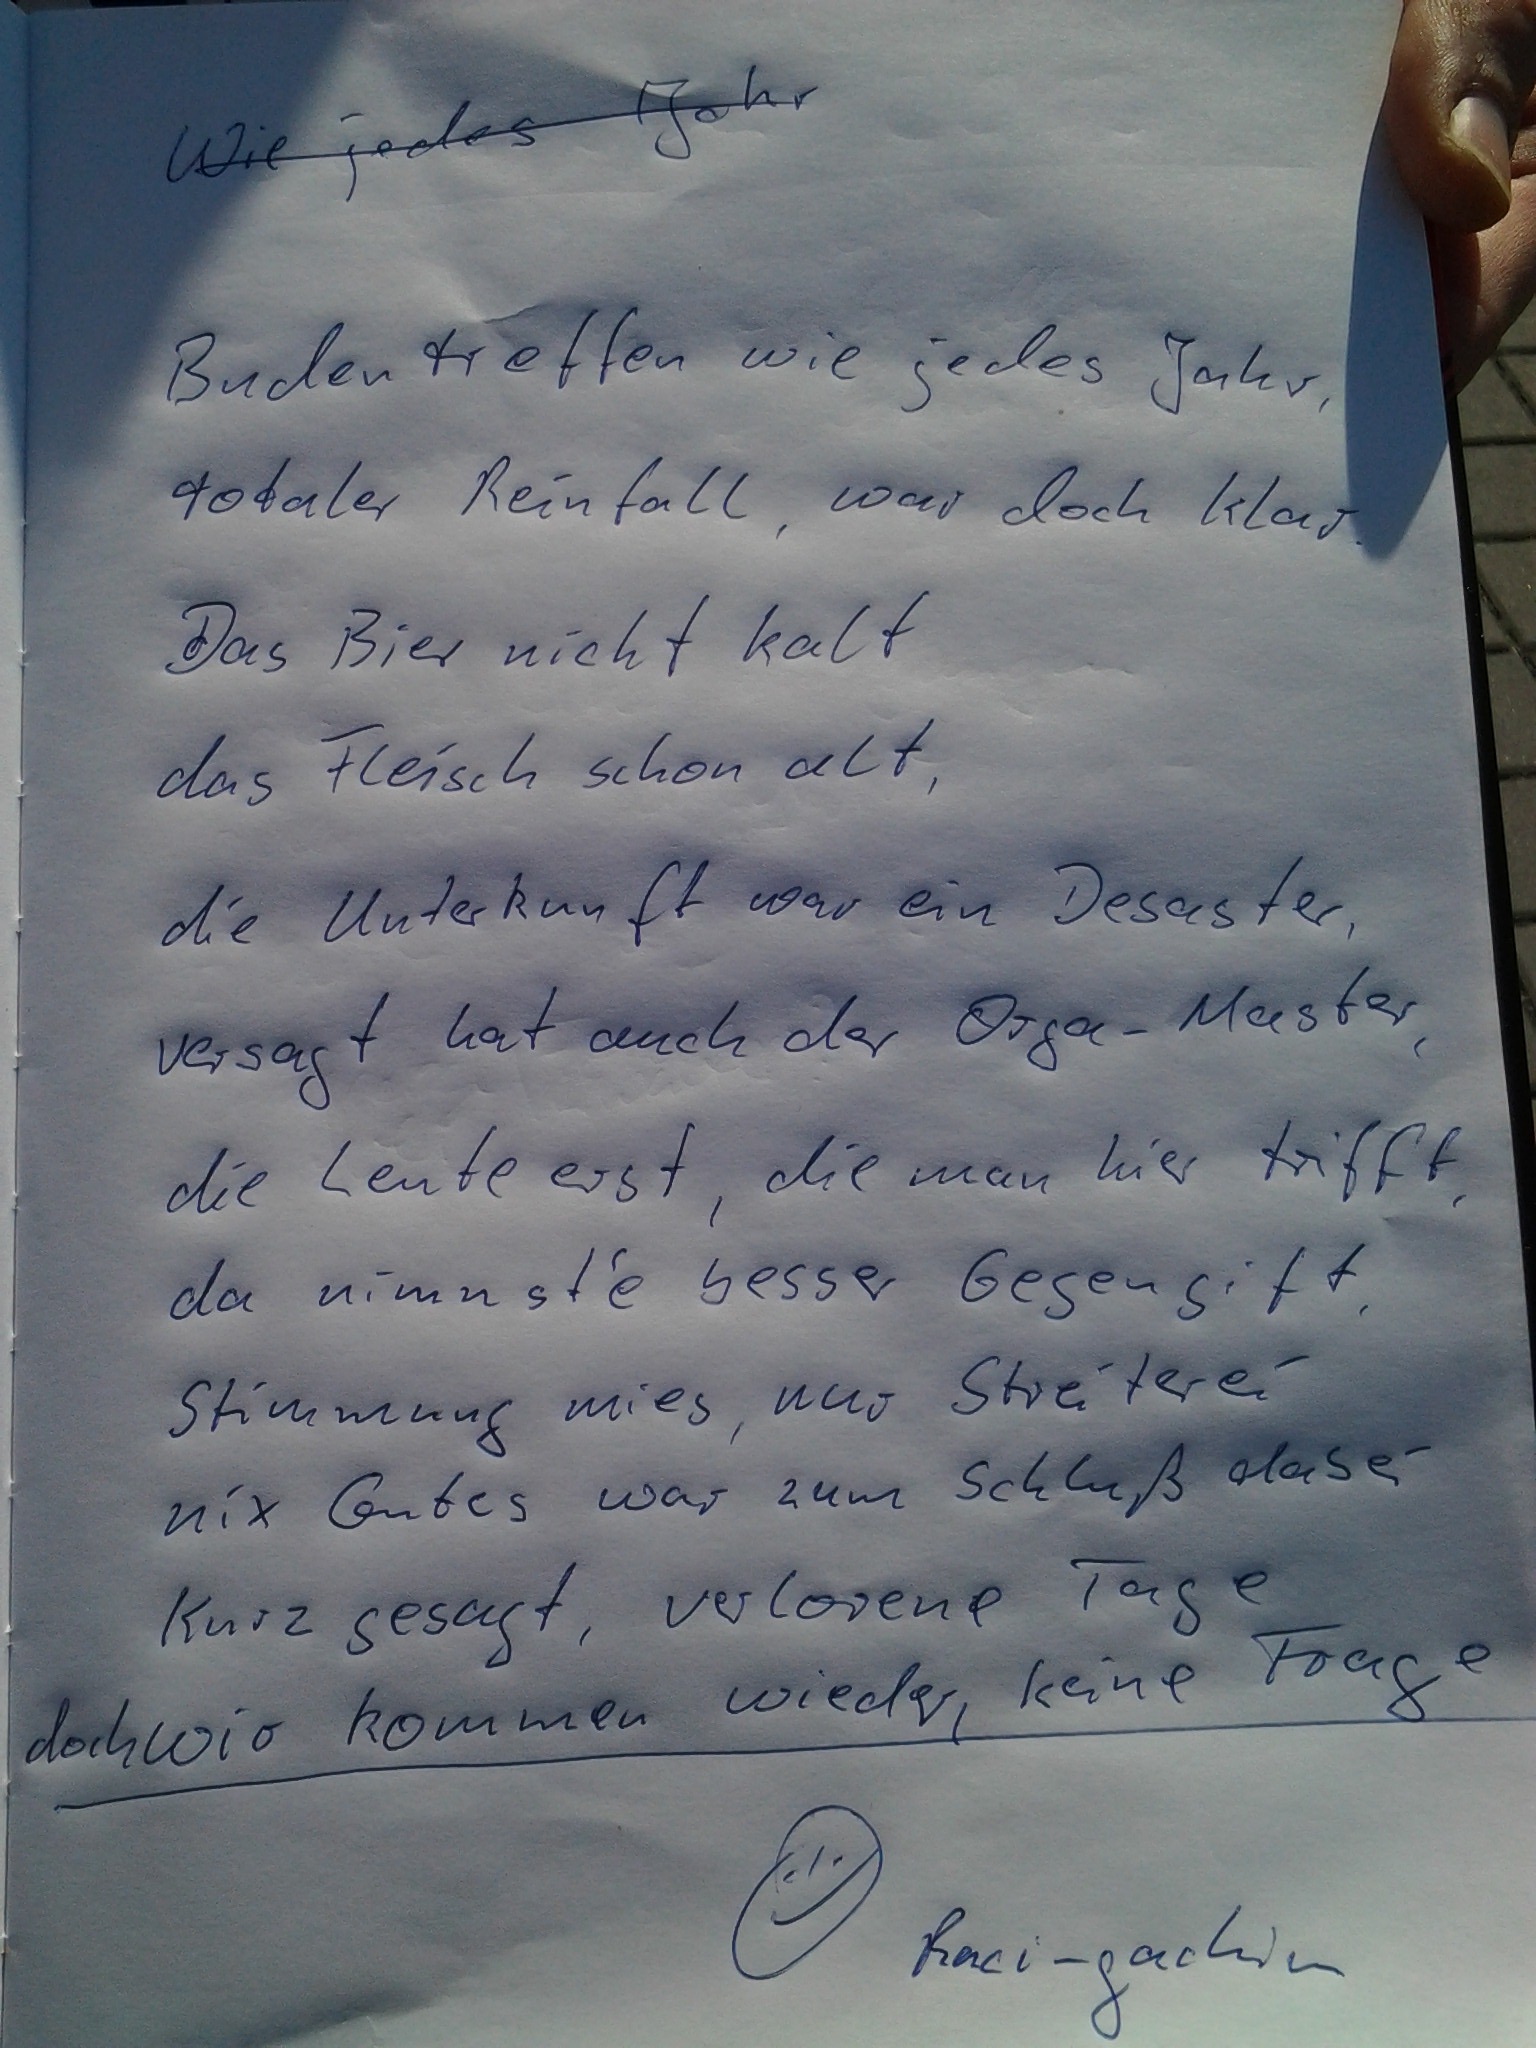 Wie jedes Jahr
Budentreffen wie jedes Jahr,
totaler Reinfall, war doch klar.
Das Bier nicht kalt
das Fleisch schon alt,
die Unterkunft war ein Desaster,
versagt hat auch der Orga-Master,
die Leute erst, die man hier trifft,
da nimmst'e besser Gegengift.
Stimmung mies, nur Streiterei
nix Gutes war zum Schluß dabei
Kurz gesagt, verlorene Tage
doch wir kommen wieder, keine Frage